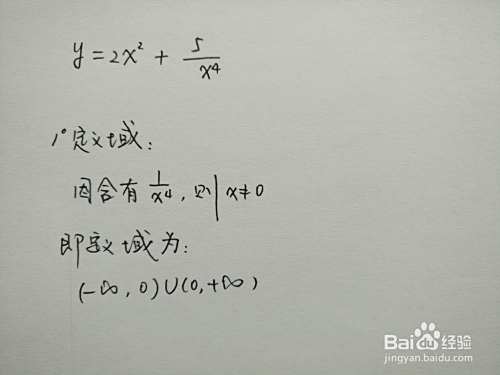 y = 2x² + 5/x⁴
1° 定义域:
因含有 1/x⁴, 则 x≠0
即定义域为:
(-∞, 0)∪(0, +∞)
Baidu 经验
jingyan.baidu.com